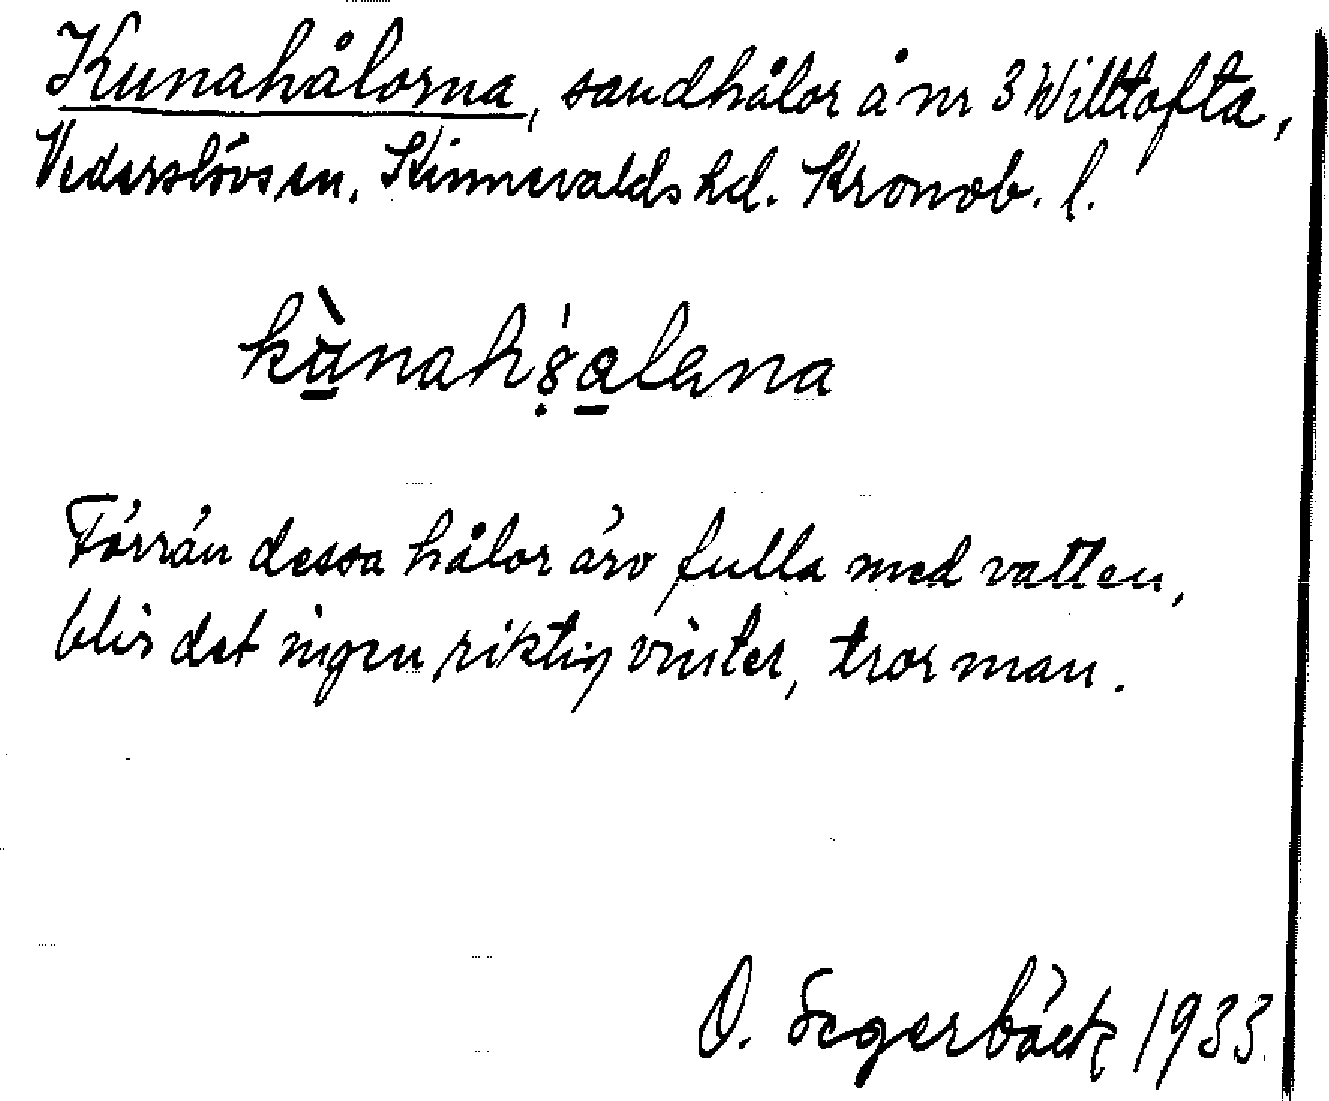 Kunahålorna, sandhålor å nr 3 Willtofta,
Vederslövs sn. Kinnevalds hd. Kronob. l.
Förrän dessa hålor äro fulla med vatten,
blir det ingen riktig vinter, tror man.
O. Segerbäck 1933.